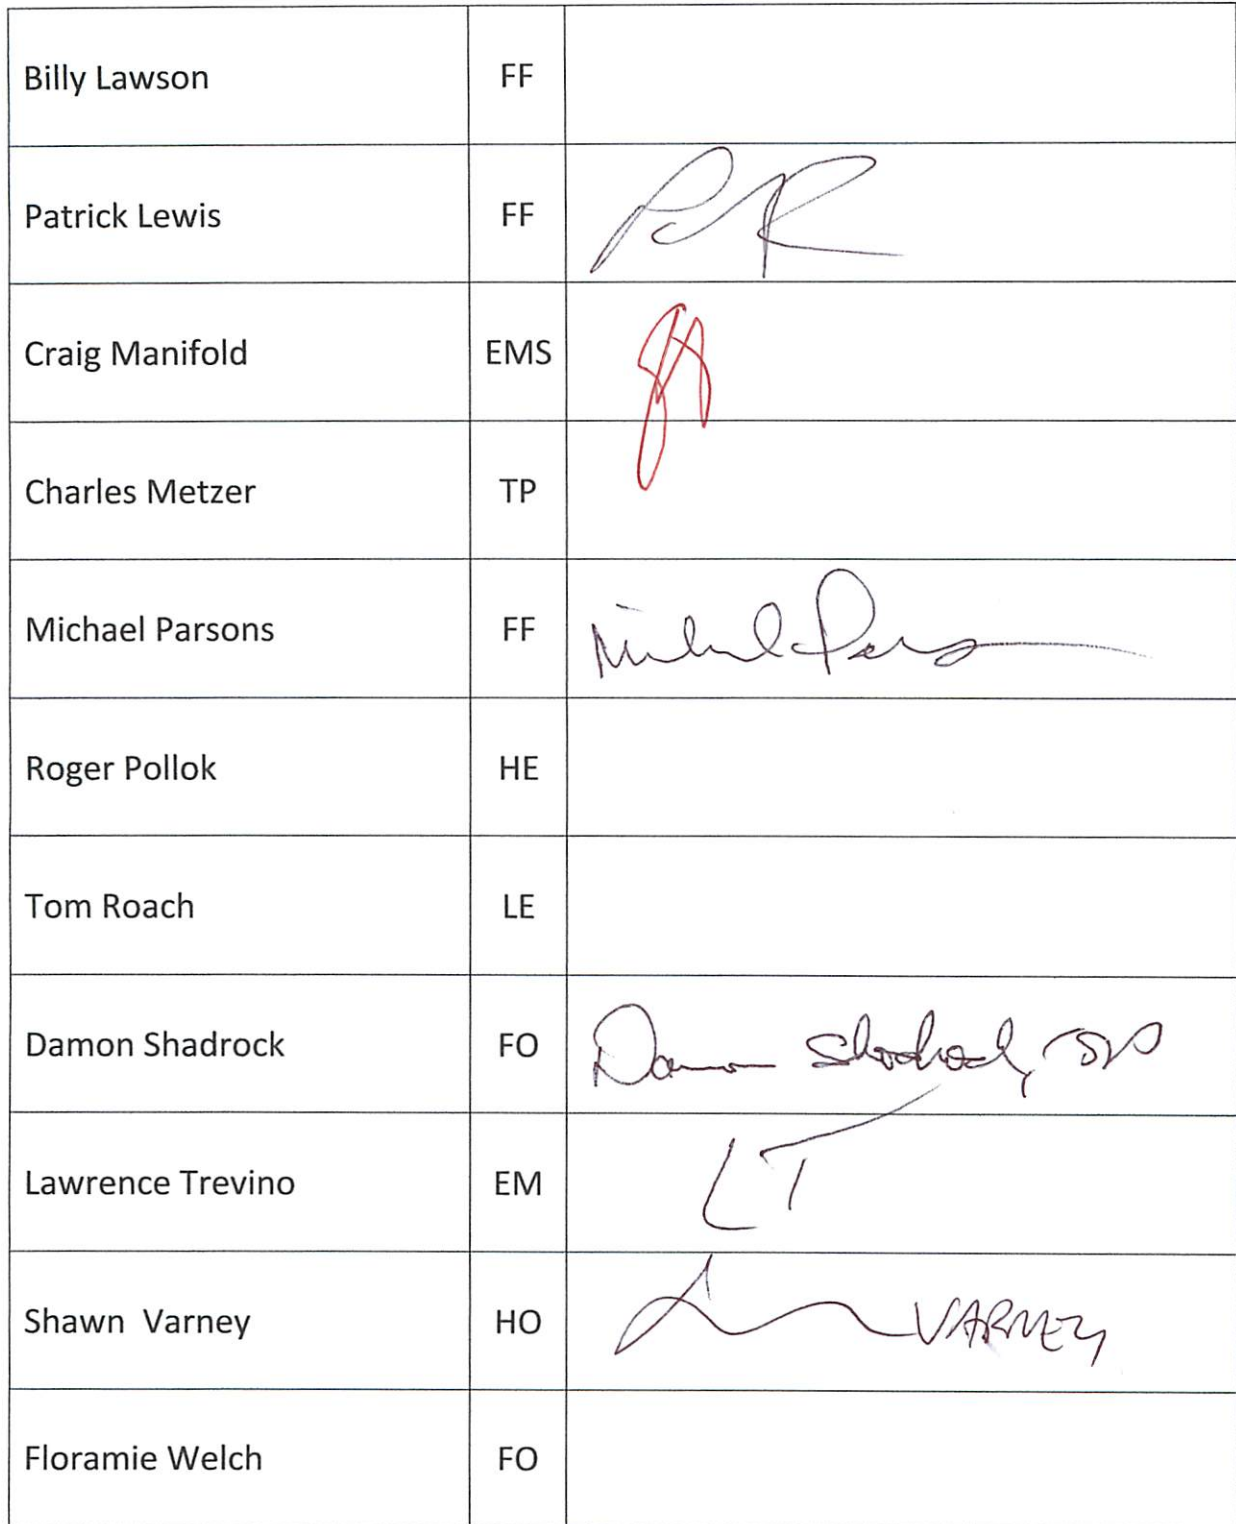 Billy Lawson FF
Patrick Lewis FF
Craig Manifold EMS
Charles Metzer TP
Michael Parsons FF Michael
Roger Pollok HE
Tom Roach LE
Damon Shadrock FO Damon Shadrock,
Lawrence Trevino EM LT
Shawn Varney HO VARNEY
Floramie Welch FO